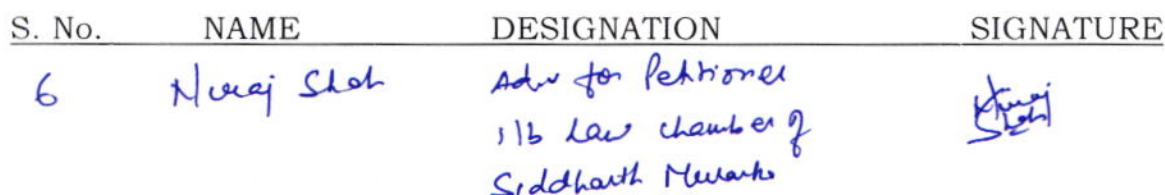 S. No. NAME DESIGNATION SIGNATURE
6 Niraj Shah Adv for Petitioner
i/b Law chamber of
Siddharth Murarka